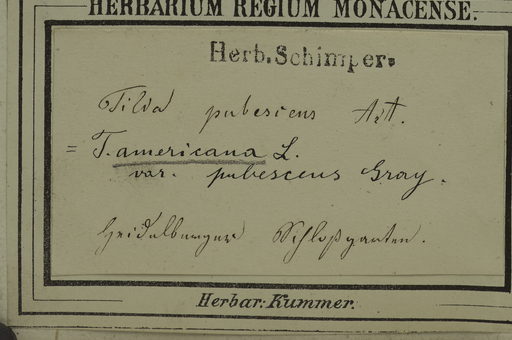 HERBARIUM REGIUM MONACENSE.
Herb. Schimper.
Tilia pubescens Ait.
= T. americana L.
var. pubescens Gray.
Heidelberger Schloßgarten.
Herbar: Kummer.